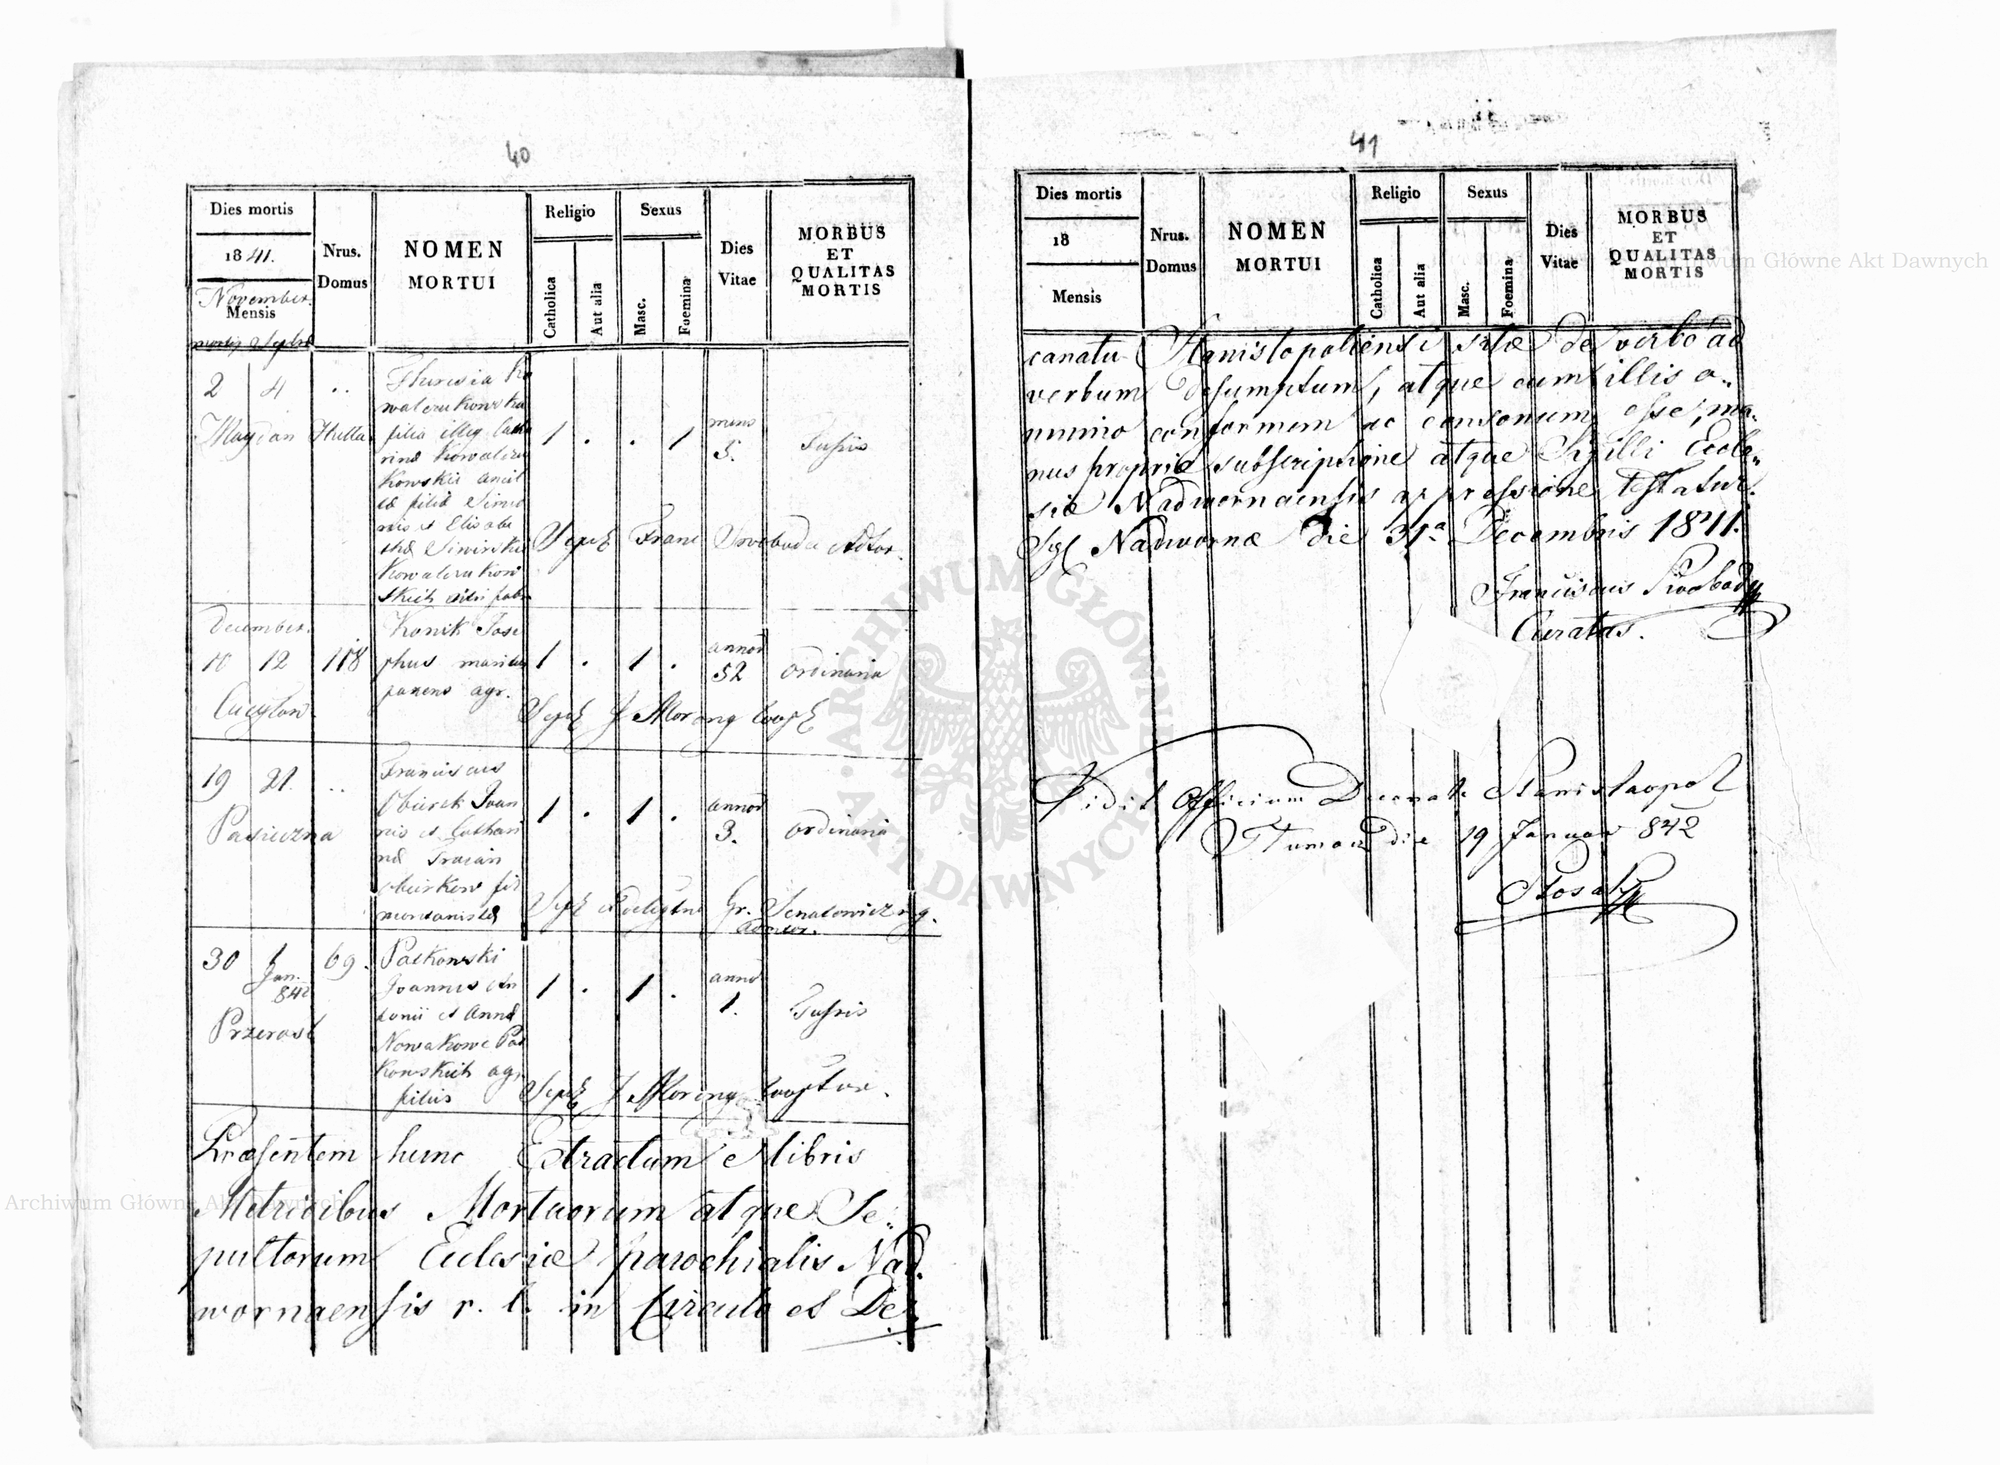 40
Dies mortis
1841.
November.
Mensis
mortis Sepult
Nrus.
Domus
NOMEN
MORTUI
Religio
Catholica
Aut alia
Sexus
Masc.
Foemina
Dies
Vitae
MORBUS
ET
QUALITAS
MORTIS
2 4 ..
Maydan
Theresia Ko
walczukowska
filia illeg. Catha
rinæ Kowalczu
kowskie ancil
læ filiæ Simo
nis et Elisabe
thæ
Kowalczukow
skich
1 . . 1
mens
5.
Tussis
Sepel Franc Swoboda Admr.
December.
10 12 118
Cucylow
Konik Jose
phus maritus
parens agr.
1 . 1 .
annor
52
ordinaria
Sepel J Moron Coop
19 21. ..
Pasieczna
Franciscus
Joan
nis et Cathari
næ
montanistæ
1 . 1 .
annor
3.
ordinaria
Gr.
30 1 69.
Jan.
842
Przerosl
Patkowski
Joannes An
tonii et Annæ
Nowakow Pat
kowskich agr.
filius
1 . 1 .
anno
1.
Tussis
Sepel J Moron Cooptor.
Præsentem hunc Extractum e libris
Metricibus Mortuorum atque Se„
pultorum Eclesiæ parochialis Nad„
wornaensis r. l. in Circulo et De„
41
Dies mortis
18
Mensis
Nrus.
Domus
NOMEN
MORTUI
Religio
Catholica
Aut alia
Sexus
Masc.
Foemina
Dies
Vitae
MORBUS
ET
QUALITAS
MORTIS
canatu Stanislopoliensi sitæ de verbo ad
verbum desumptum, atque cum illis o„
mnino conformem ac consonum esse, ma„
nus propriæ subscriptione atque Sigilli Eccle„
siæ Nadwornaensis appressione testatur.
Sgl Nadwornæ die 31a Decembris 1841.
Franciscus Swoboda
Curatus.
Vidit Officium Decanale Stanislaopol
Tlumacz die 19 Januar 842
Archiwum Główne Akt Dawnych
Archiwum Główne Akt Dawnych
ARCHIWUM GŁÓWNE
AKT DAWNYCH